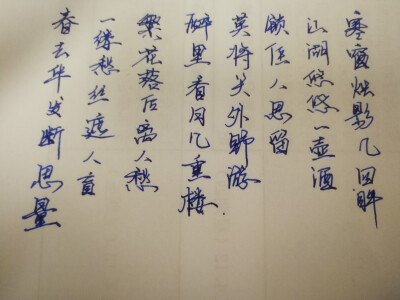 寒窗烛影几回眸
江湖悠悠一壶酒
锁住人思留
莫将关外野游
醉里看月几重楼.
繁花落后离人愁
一缕愁丝遮人盲
春去华发断思量